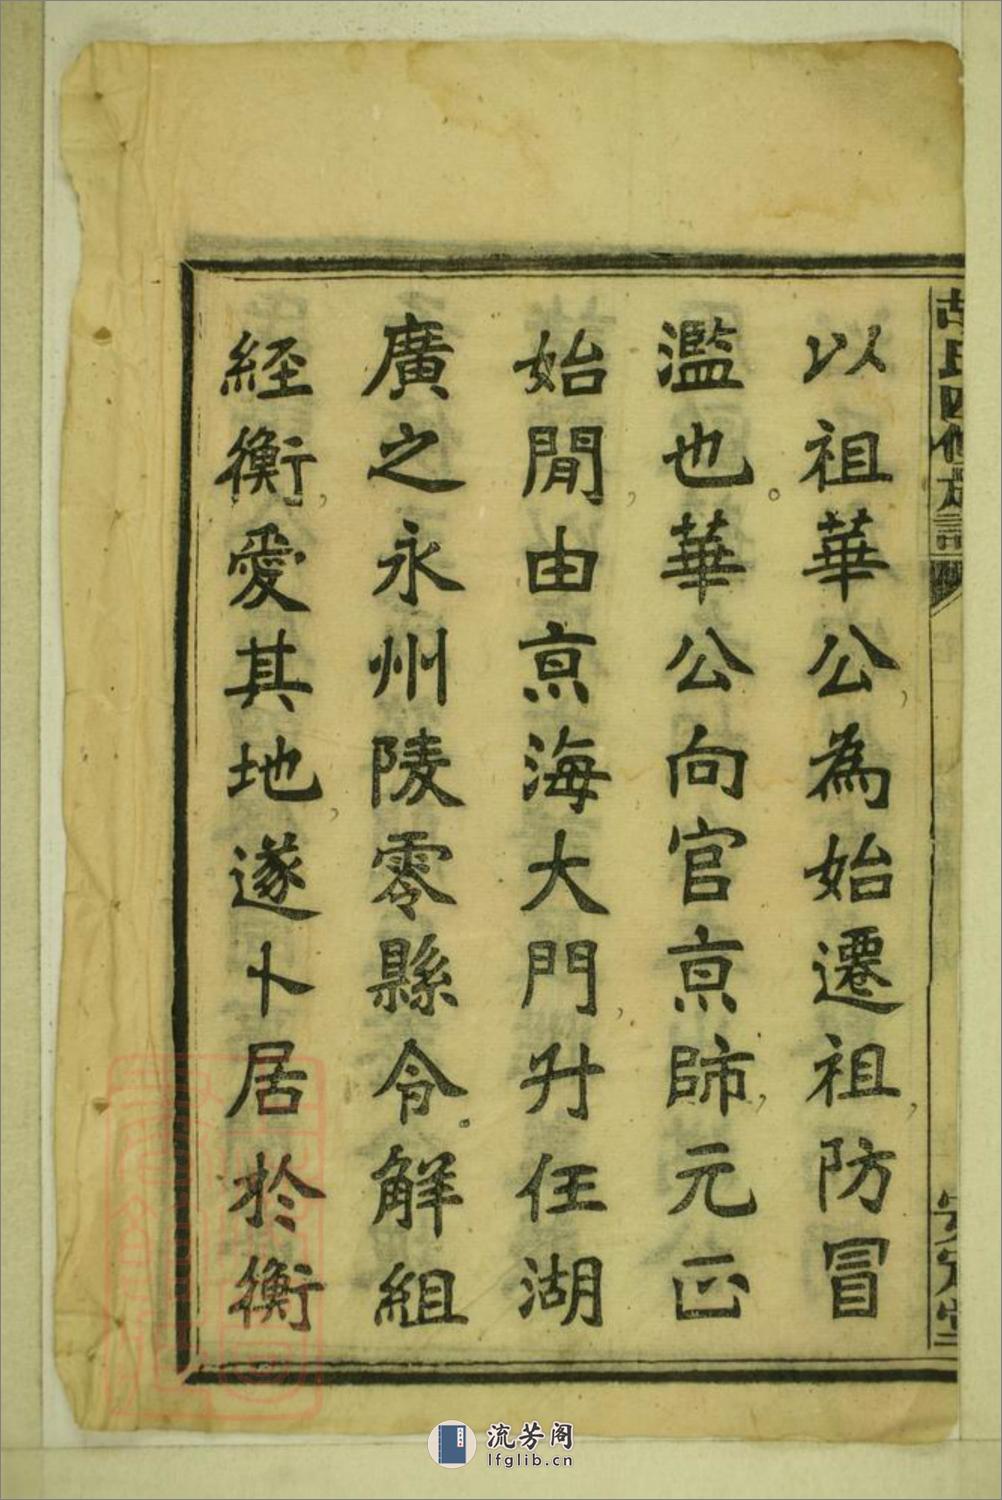 以祖華公為始遷祖防冒
濫也華公向官亰師元正
始閒由亰海大門升任湖
廣之永州陵零縣令解組
経衡愛其地遂卜居於衡
氏四修族譜
安定堂
流芳阁
lfglib.cn